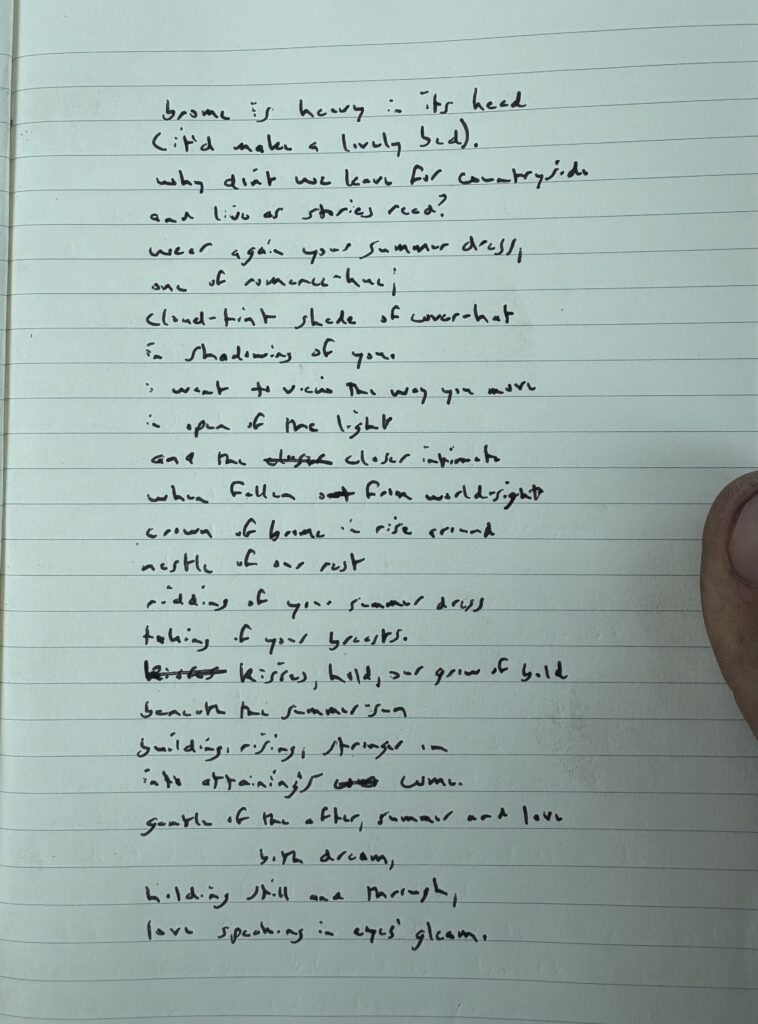 brome is heavy in its head
(it'd make a lively bed).
why don't we leave for countryside
and live as stories read?
wear again your summer dress,
one of romance-hue;
cloud-tint shade of cover-hat
in shadowing of you.
i want to view the way you move
in open of the light
and the closer intimate
when fallen from world-sight
crown of brome in rise around
nestle of our rest
ridding of your summer dress
taking of your breasts.
kisses, hold, our grow of bold
beneath the summer-sun
building, rising, stronger in
into attaining's come.
gentle of the after, summer and love
both dream,
holding still and through,
love speaking in eyes' gleam.